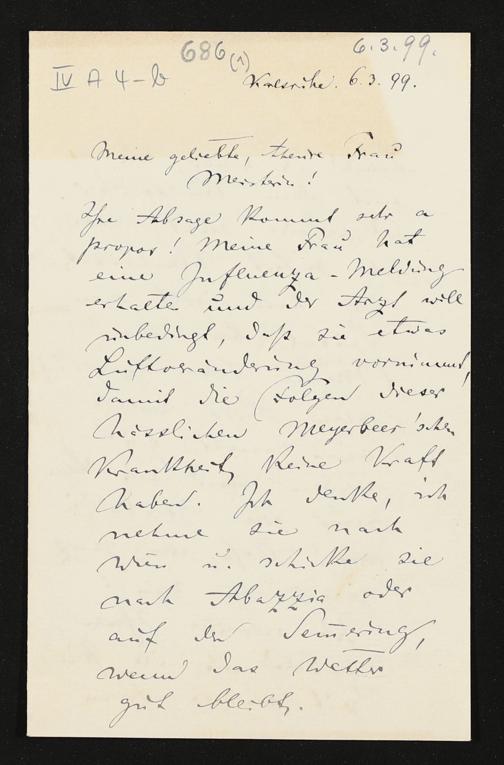 686 (1)
6.3.99.
IV A 4-b
Karlsruhe. 6.3.99.
Meine geliebte, theure Frau
Meisterin!
Ihre Absage kommt sehr a
propos! Meine Frau hat
eine Influenza-Meldung
erhalten und der Arzt will
unbedingt, daß sie etwas
Luftveränderung vornimmt,
damit die Folgen dieser
hässlichen Meyerbeer'schen
Krankheit, keine Kraft
haben. Ich denke, ich
nehme sie nach
Wien u. schicke sie
nach Abazzia oder
auf den Semering,
wenn das Wetter
gut bleibt.